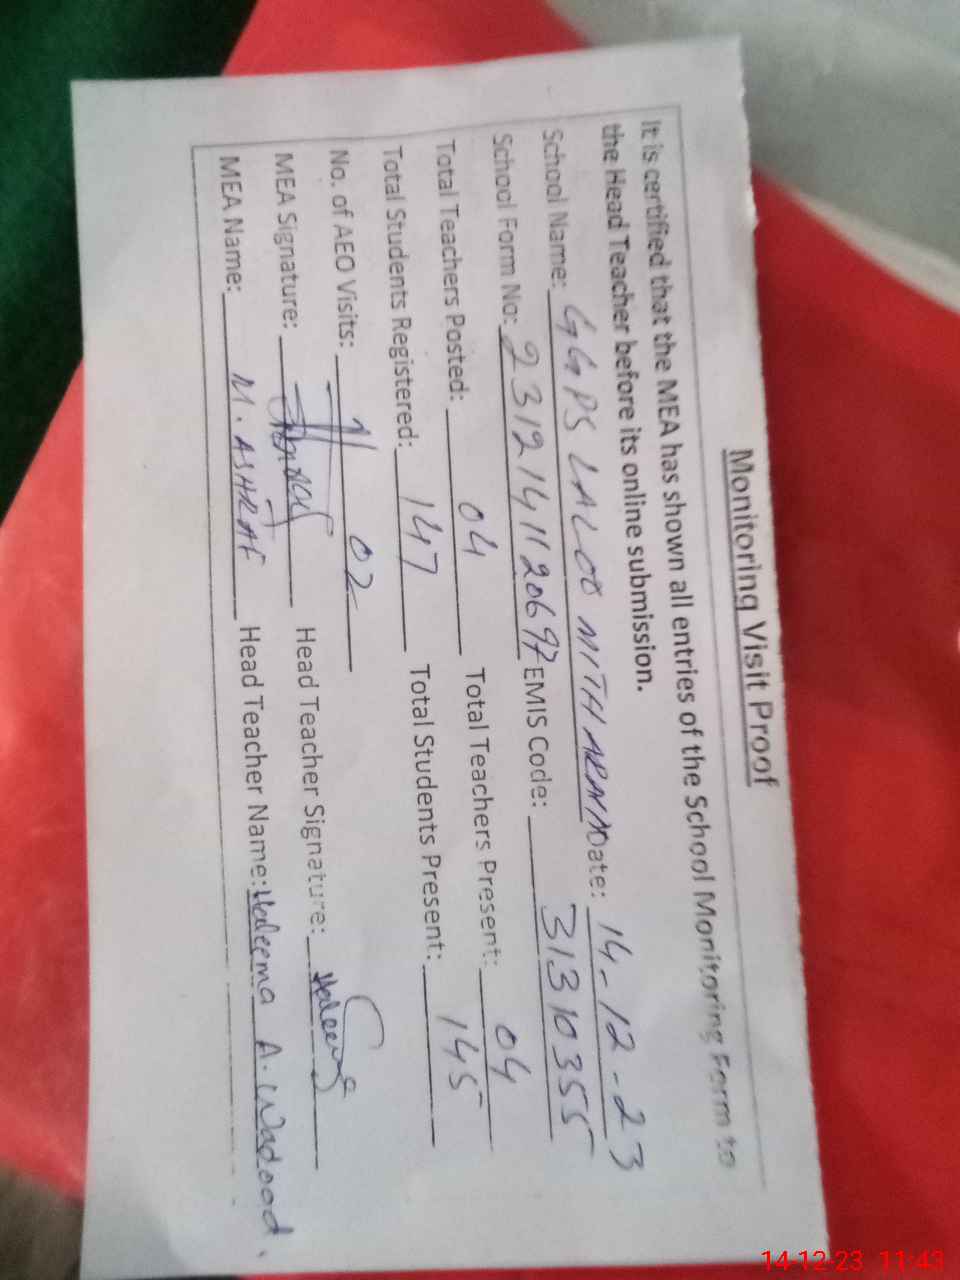 Monitoring Visit Proof
It is certified that the MEA has shown all entries of the School Monitoring Form to
the Head Teacher before its online submission.
School Name: GGPS LALOO MITHARAN Date: 14-12-23
School Form No: 2312141120697 EMIS Code: 31310355
Total Teachers Posted: 04 Total Teachers Present: 04
Total Students Registered: 147 Total Students Present: 145
No. of AEO Visits: 02
MEA Signature: Head Teacher Signature: Haleema
MEA Name: M. ASHRAF Head Teacher Name: Haleema A. Wadood.
14-12-23 11:43